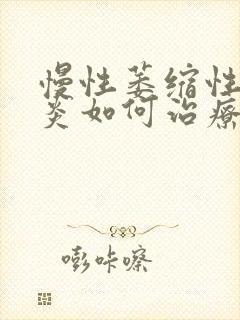 慢性萎缩性
炎如何治療
嘭咔嚓